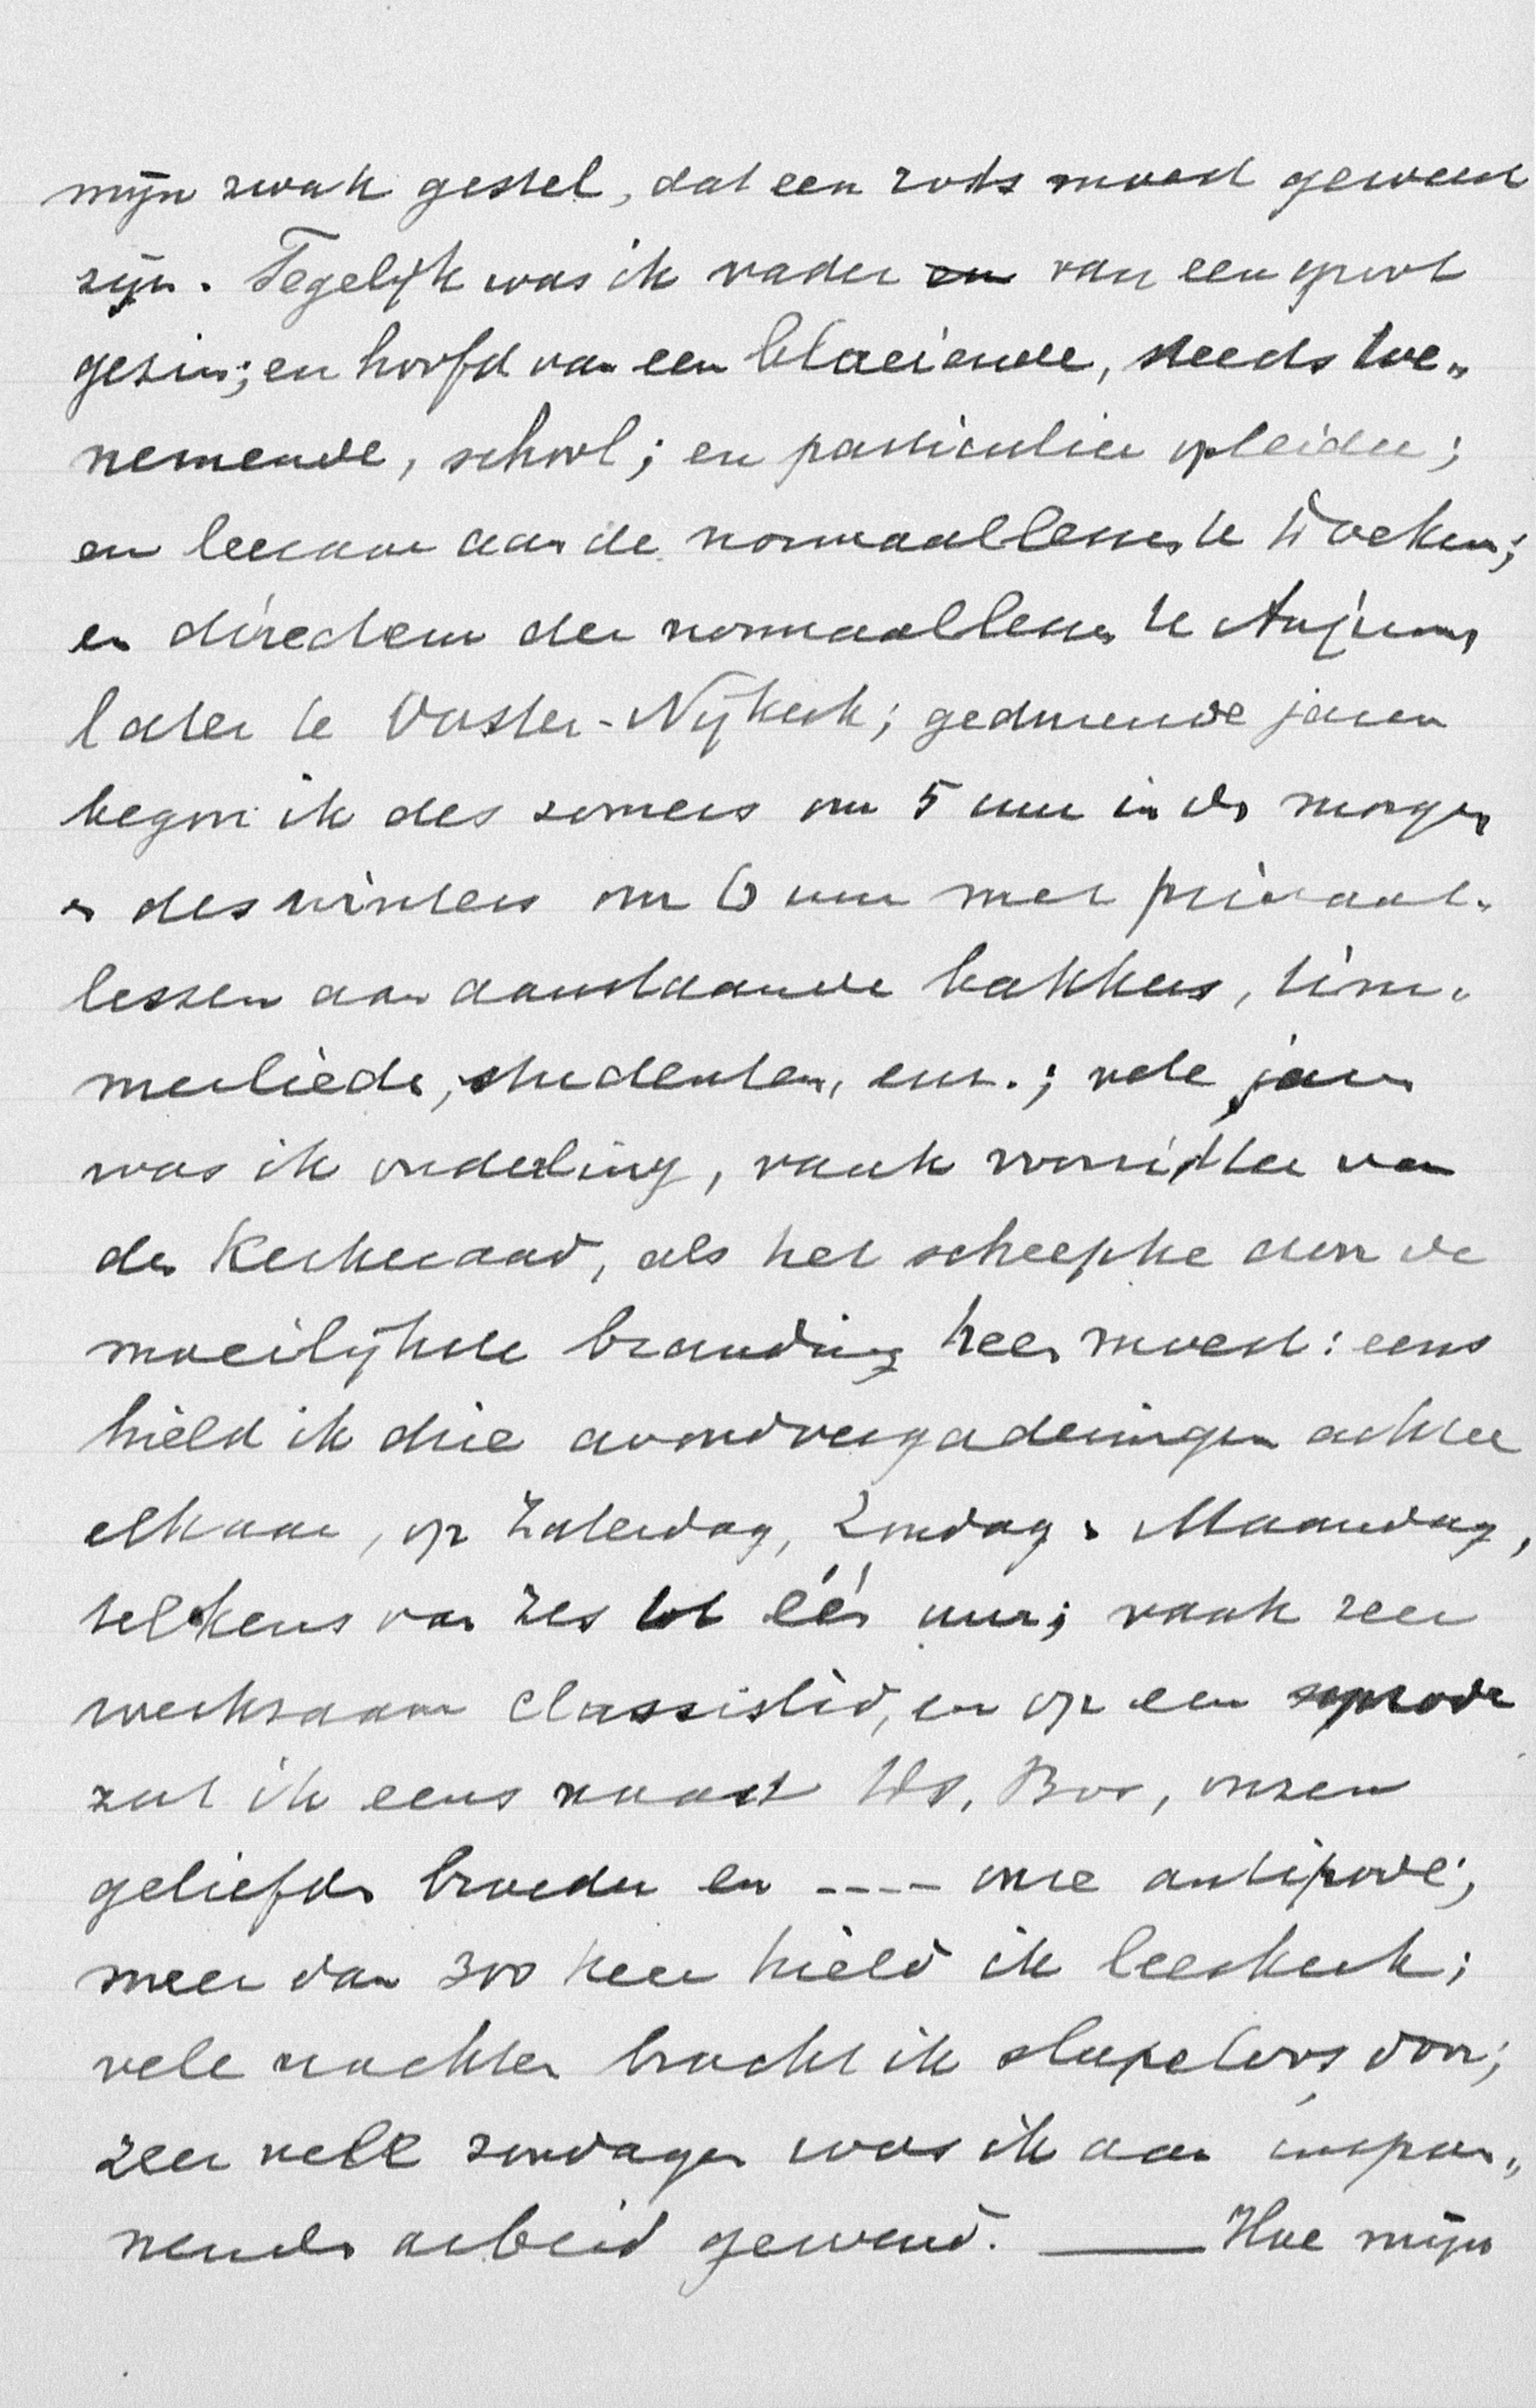 mijn zwak gestel, dat een rots moest geweest
zijn. Tegelijk was ik vader en van een groot
gezin; en hoofd van een bloeiende, steeds toe-
nemende, school; en particulier opleider;
en leeraar aan de normaallessen te Dockum;
en directeur der normaallessen te Anjum,
later te Ooster-Nijkerk; gedurende jaren
begon ik des zomers om 5 uur in den morgen
en des winters om 6 uur met privaat-
lessen aan aanstaande bakkers, tim-
merlieden, studenten, enz.; vele jaren
was ik ouderling, vaak voorzitter van
den Kerkeraad, als het scheepke door de
moeilijkste branding heen moest: eens
hield ik drie avondvergaderingen achter
elkaar, op Zaterdag, Zondag en Maandag,
telkens van zes tot één uur; vaak zeer
werkzaam classislid, en op een synode
zat ik eens naast Ds. Bos, onzen
geliefden broeder en ---- onze antipode;
meer dan 300 keer hield ik leeskerk;
vele nachten bracht ik slapeloos door;
zeer vele zondagen was ik aan inspan-
nenden arbeid gewend. — Hoe mijn